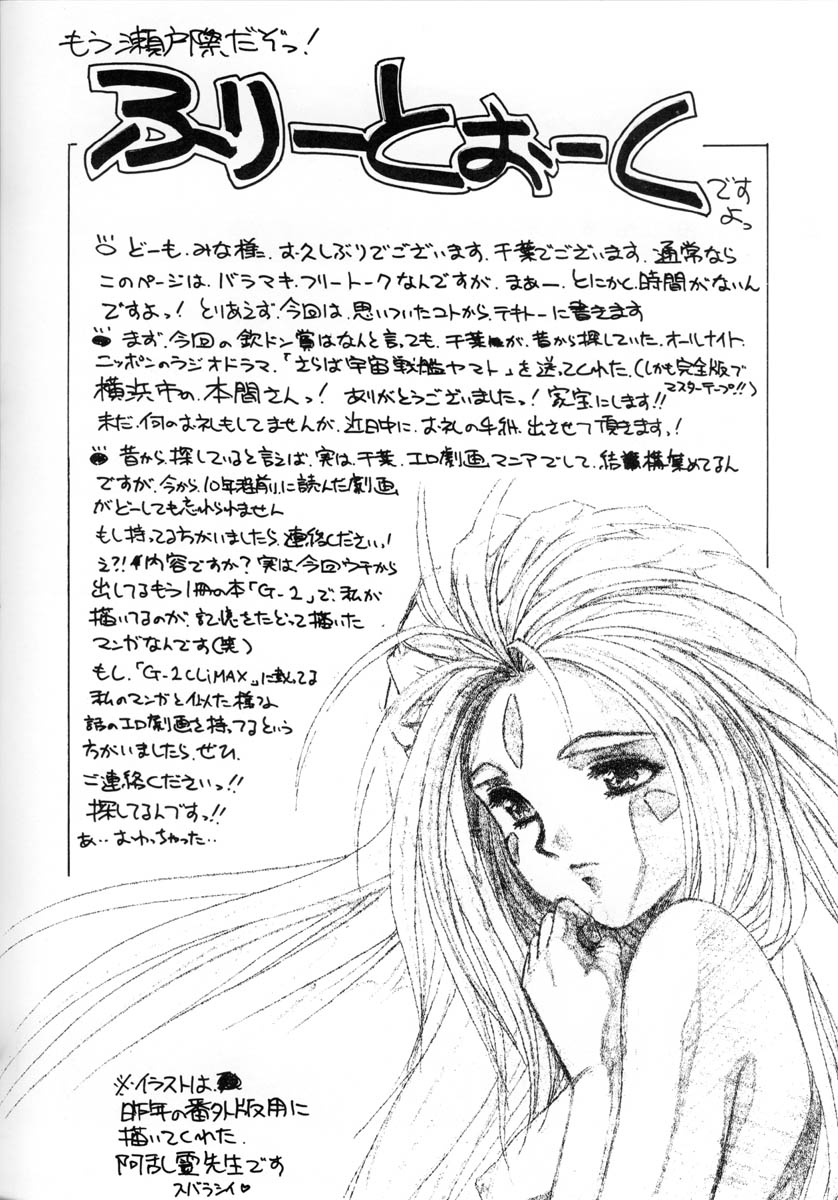 もう瀬戸際だぞっ!
ふりーとぉーく
ですよっ
どーも、みな様、お久しぶりでございます、千葉でございます、通常なら
このページは、バラマキ・フリートークなんですが、まぁー、とにかく、時間がないん
ですよっ! とりあえず、今回は、思いついたコトから、テキトーに書きます
まず、今回の欽ドン賞はなんと言っても、千葉が、昔から探していた、オールナイト・
ニッポンのラジオドラマ、「さらば宇宙戦艦ヤマト」を送ってくれた、(しかも完全版で
マスターテープ!!)
横浜市の、本間さんっ! ありがとうございましたっ! 家宝にします!!
まだ、何のお礼もしてませんが、近日中に、お礼の手紙、出させて頂きますっ!
昔から、探していると言えば、実は、千葉、エロ劇画マニアでして、結構集めてるん
ですが、今から、10年程前に読んだ劇画
がどーしても忘れられません
もし持ってる方がいましたら、連絡くださいっ!
え?!内容ですか?実は、今回ウチから
出してるもう1冊の本「G-2」で、私が
描いてるのが、記憶をたどって描いた
マンガなんです(笑)
もし、「G-2CLiMAX」に載ってる
私のマンガと似た様な
話のエロ劇画を持ってるという
方がいましたら、ぜひ、
ご連絡くださいっ!!
探してるんですっ!!
あ‥おわっちゃった‥
※イラストは、
昨年の番外版用に
描いてくれた、
阿乱霊先生です
スバラシイ♡